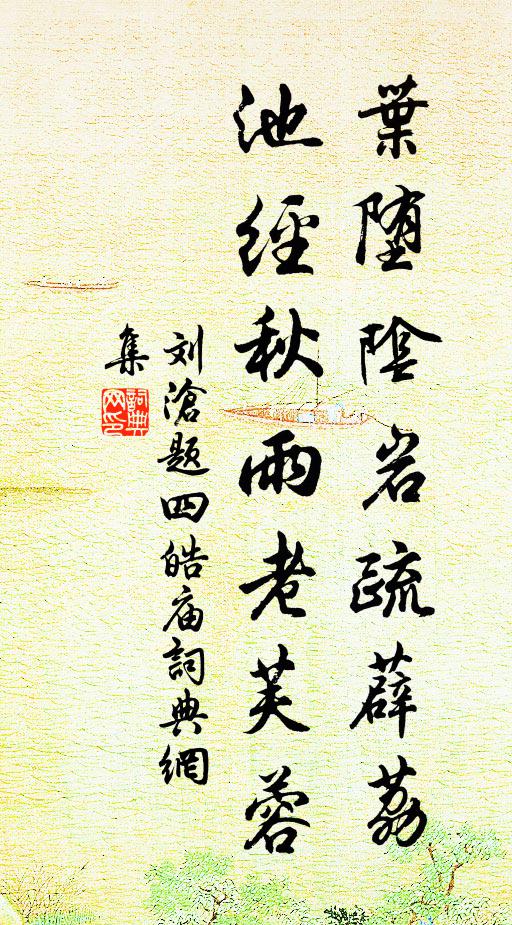 葉堕陰岩疏薜荔
池經秋雨老芙蓉
刘滄题四皓庙詞典網
集
詞典网印